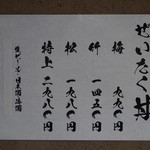 ぜいたく丼
梅
竹 一四五〇円
松 一九八〇円
特上 二九八〇円